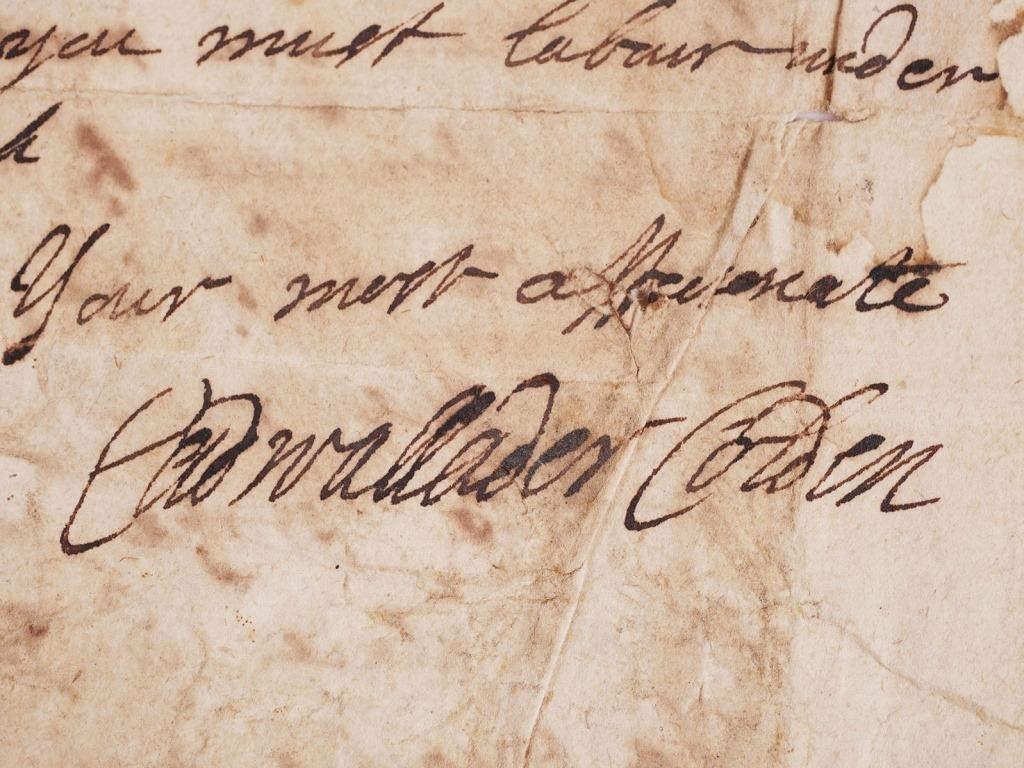 you must labour under
h
Your most affectionate
Cadwallader Colden